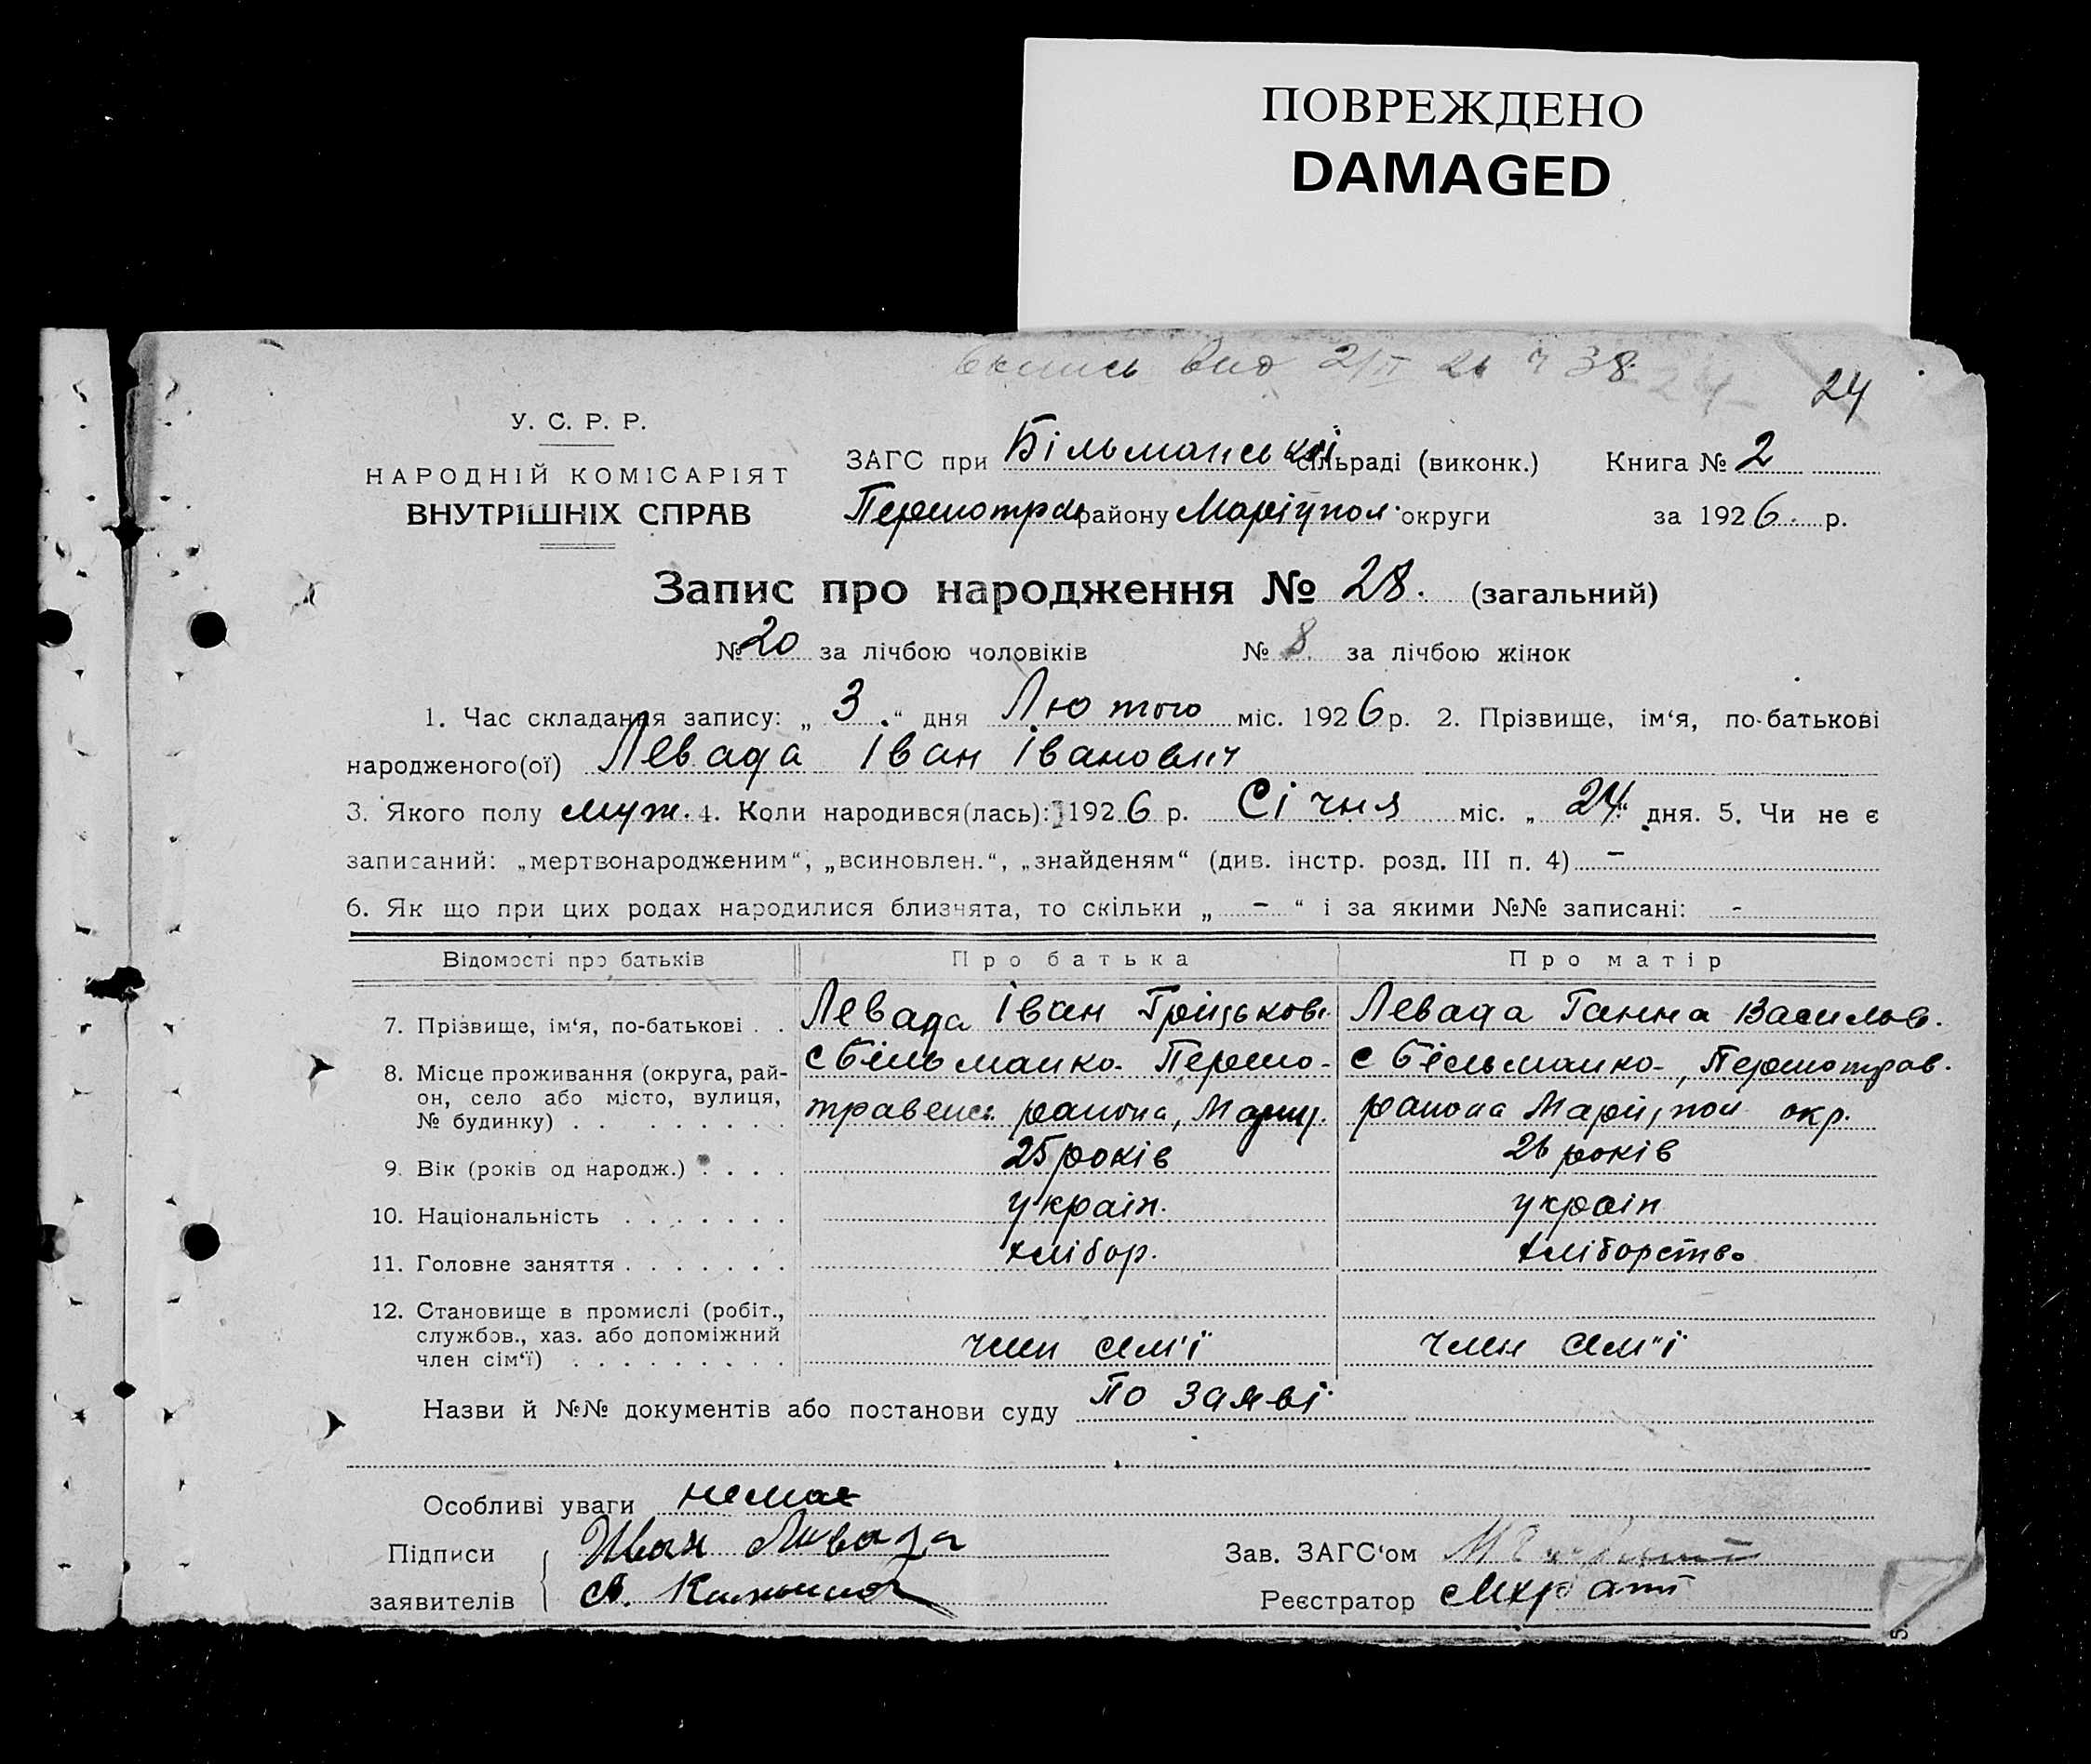 ПОВРЕЖДЕНО
DAMAGED
24
У. С. Р. Р.
НАРОДНІЙ КОМІСАРІЯТ
ВНУТРІШНІХ СПРАВ
ЗАГС при Більманській сільраді (виконк.) Книга № 2
Першотрав району Маріупол. округи за 1926. р.
Запис про народження № 28. (загальний)
№ 20 за лічбою чоловіків № 8 за лічбою жінок
1. Час складання запису: „ 3 “ дня Лютого міс. 1926 р. 2. Прізвище, ім‘я, по-батькові
народженого(ої) Левада Іван Іванович
3. Якого полу муж. 4. Коли народився(лась): 1926 р. Січня міс. „ 24 “ дня. 5. Чи не є
записаний: „мертвонародженим“, „всиновлен.“, „знайденям“ (див. інстр. розд. III п. 4) –
6. Як що при цих родах народилися близнята, то скільки „ – “ і за якими №№ записані: -
Відомості про батьків Про батька Про матір
7. Прізвище, ім‘я, по-батькові . . Левада Іван Гріцьков. Левада Ганна Василов.
8. Місце проживання (округа, рай- с Більманко- Першо- с Більманко-, Першотрав.
он, село або місто, вулиця, травенс. района, Маріу. района Маріупол окр.
№ будинку) . . . . . . . . .
9. Вік (років од народж.) . . . . 25 років 26 років
10. Національність . . . . . . . україн. україн
11. Головне заняття . . . . . . . хлібор. хліборство
12. Становище в промислі (робіт.,
службов., хаз. або допоміжний
член сім‘ї) . . . . . . . . . член сем'ї член сем"ї
Назви й №№ документів або постанови суду по заяві
Особливі уваги немає
Підписи Иван Ливада Зав. ЗАГС‘ом
заявителів Реєстратор